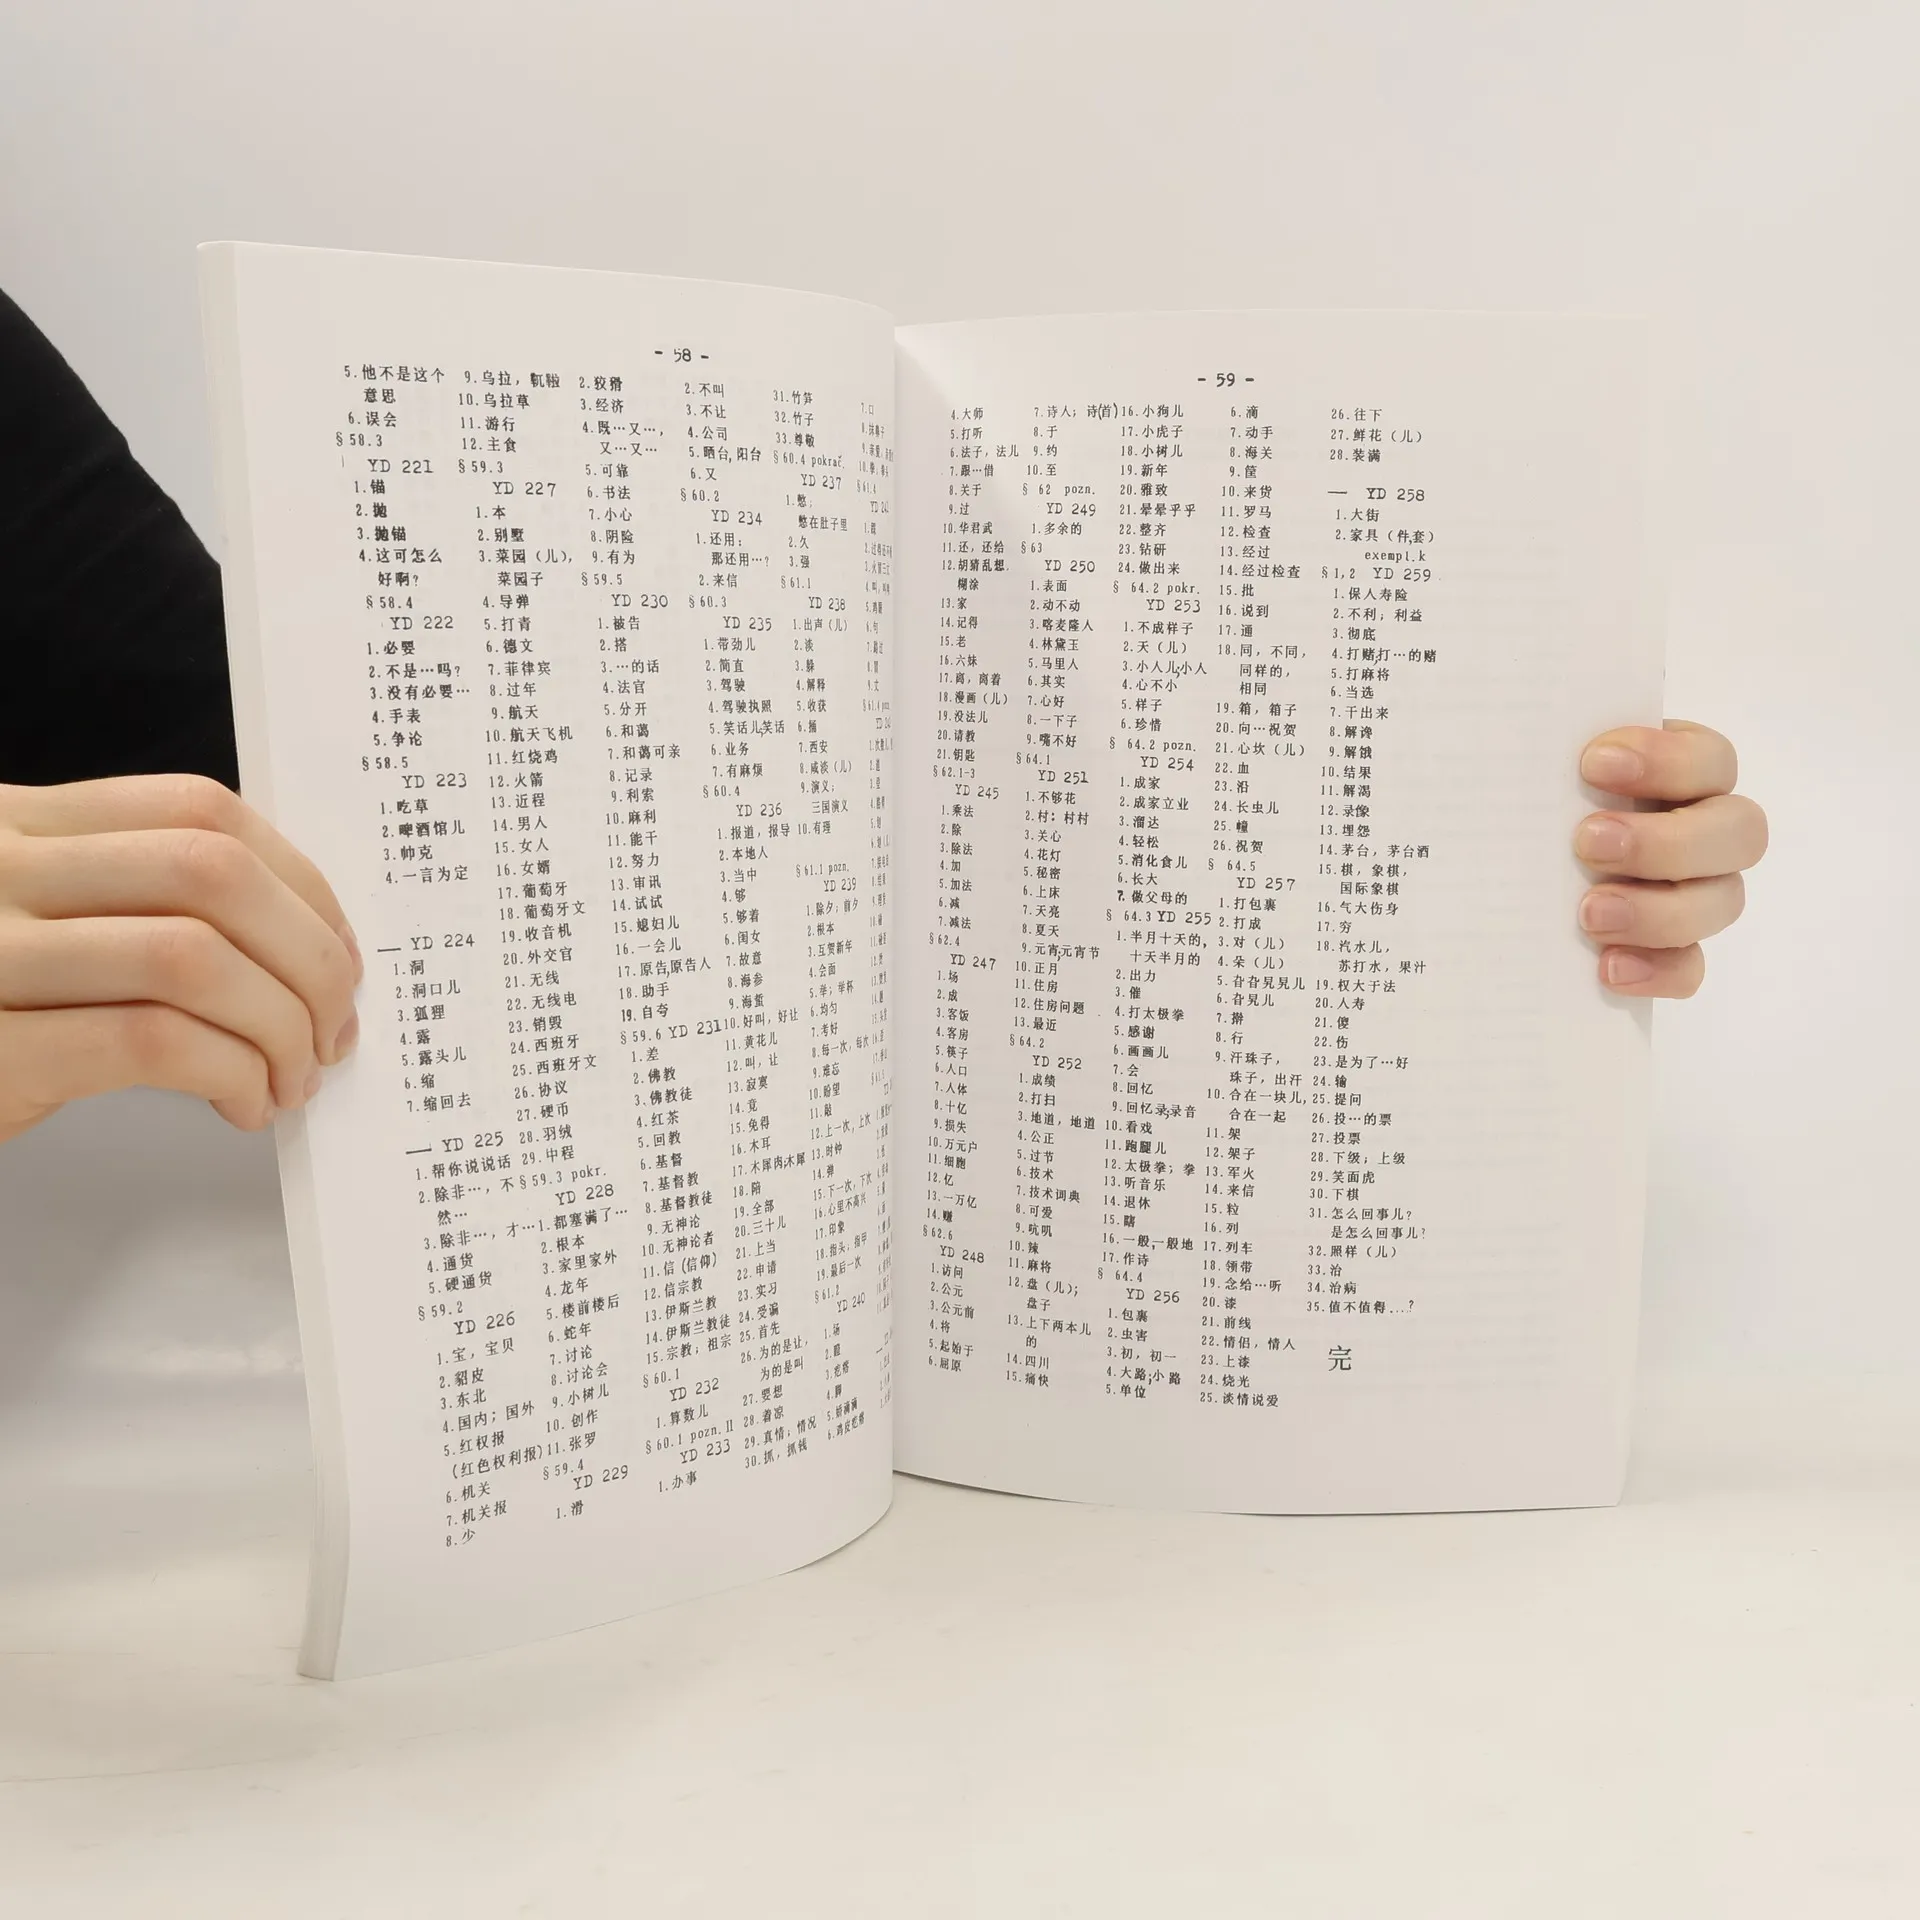 - 58 -
5.他不是这个
意思
6.误会
§58.3
YD 221
1.锚
2.抛
3.抛锚
4.这可怎么
好啊?
§58.4
YD 222
1.必要
2.不是…吗?
3.没有必要…
4.手表
5.争论
§58.5
YD 223
1.吃草
2.啤酒馆儿
3.帅克
4.一言为定
— YD 224
1.洞
2.洞口儿
3.狐狸
4.露
5.露头儿
6.缩
7.缩回去
— YD 225
1.帮你说说话
2.除非…, 不
然…
3.除非…, 才…
4.通货
5.硬通货
§59.2
YD 226
1.宝, 宝贝
2.貂皮
3.东北
4.国内; 国外
5.红权报
(红色权利报)
6.机关
7.机关报
8.少
9.乌拉,
10.乌拉草
11.游行
12.主食
§59.3
YD 227
1.本
2.别墅
3.菜园 (儿),
菜园子
4.导弹
5.打青
6.德文
7.菲律宾
8.过年
9.航天
10.航天飞机
11.红烧鸡
12.火箭
13.近程
14.男人
15.女人
16.女婿
17.葡萄牙
18.葡萄牙文
19.收音机
20.外交官
21.无线
22.无线电
23.销毁
24.西班牙
25.西班牙文
26.协议
27.硬币
28.羽绒
29.中程
§59.3 pokr.
YD 228
1.都塞满了…
2.根本
3.家里家外
4.龙年
5.楼前楼后
6.蛇年
7.讨论
8.讨论会
9.小树儿
10.创作
11.张罗
§59.4
YD 229
1.滑
2.狡猾
3.经济
4.既…又…,
又…又…
5.可靠
6.书法
7.小心
8.阴险
9.有为
§59.5
YD 230
1.被告
2.搭
3.…的话
4.法官
5.分开
6.和蔼
7.和蔼可亲
8.记录
9.利索
10.麻利
11.能干
12.努力
13.审讯
14.试试
15.媳妇儿
16.一会儿
17.原告,原告人
18.助手
19.自夸
§59.6 YD 231
1.差
2.佛教
3.佛教徒
4.红茶
5.回教
6.基督
7.基督教
8.基督教徒
9.无神论
10.无神论者
11.信 (信仰)
12.信宗教
13.伊斯兰教
14.伊斯兰教徒
15.宗教; 祖宗
§60.1
YD 232
1.算数儿
§60.1 pozn.II
YD 233
1.办事
2.不叫
3.不让
4.公司
5.晒台, 阳台
6.又
§60.2
YD 234
1.还用;
那还用…?
2.来信
§60.3
YD 235
1.带劲儿
2.简直
3.驾驶
4.驾驶执照
5.笑话儿,笑话
6.业务
7.有麻烦
§60.4
YD 236
1.报道, 报导
2.本地人
3.当中
4.够
5.够着
6.闺女
7.故意
8.海参
9.海蜇
10.好叫, 好让
11.黄花儿
12.叫, 让
13.寂寞
14.竟
15.免得
16.木耳
17.木犀肉,木犀
18.陪
19.全部
20.三十儿
21.上当
22.申请
23.实习
24.受骗
25.首先
26.为的是让,
为的是叫
27.要想
28.着凉
29.真情; 情况
30.抓, 抓钱
31.竹笋
32.竹子
33.尊敬
§60.4 pokrač.
YD 237
1.憋;
憋在肚子里
2.久
3.强
§61.1
YD 238
1.出声 (儿)
2.淡
3.躲
4.解释
5.收获
6.捅
7.西安
8.咸淡 (儿)
9.演义;
三国演义
10.有理
§61.1 pozn.
YD 239
1.除夕; 前夕
2.根本
3.互贺新年
4.会面
5.举; 举杯
6.均匀
7.考好
8.每一次, 每次
9.难忘
10.盼望
11.敲
12.上一次, 上次
13.时钟
14.弹
15.下一次, 下次
16.心里不高兴
17.印象
18.指头; 指甲
19.最后一次
§61.2
YD 240
1.场
3.疙瘩
4.脚
5.娇滴滴
6.鸡皮疙瘩
7.口
- 59 -
4.大师
5.打听
6.法子, 法儿
7.跟…借
8.关于
9.过
10.华君武
11.还, 还给
12.胡猜乱想.
糊涂
13.家
14.记得
15.老
16.六妹
17.离, 离着
18.漫画 (儿)
19.没法儿
20.请教
21.钥匙
§62.1-3
YD 245
1.乘法
2.除
3.除法
4.加
5.加法
6.减
7.减法
§62.4
YD 247
1.场
2.成
3.客饭
4.客房
5.筷子
6.人口
7.人体
8.十亿
9.损失
10.万元户
11.细胞
12.亿
13.一万亿
14.赚
§62.6
YD 248
1.访问
2.公元
3.公元前
4.将
5.起始于
6.屈原
7.诗人; 诗(首)
8.于
9.约
10.至
§ 62 pozn.
YD 249
1.多余的
§63
YD 250
1.表面
2.动不动
3.喀麦隆人
4.林黛玉
5.马里人
6.其实
7.心好
8.一下子
9.嘴不好
§64.1
YD 251
1.不够花
2.村: 村村
3.关心
4.花灯
5.秘密
6.上床
7.天亮
8.夏天
9.元宵;元宵节
10.正月
11.住房
12.住房问题
13.最近
§64.2
YD 252
1.成绩
2.打扫
3.地道, 地道
4.公正
5.过节
6.技术
7.技术词典
8.可爱
9.吭叽
10.辣
11.麻将
12.盘 (儿);
盘子
13.上下两本儿
的
14.四川
15.痛快
16.小狗儿
17.小虎子
18.小树儿
19.新年
20.雅致
21.晕晕乎乎
22.整齐
23.钻研
24.做出来
§ 64.2 pokr.
YD 253
1.不成样子
2.天 (儿)
3.小人儿;小人
4.心不小
5.样子
6.珍惜
§ 64.2 pozn.
YD 254
1.成家
2.成家立业
3.溜达
4.轻松
5.消化食儿
6.长大
7.做父母的
§ 64.3 YD 255
1.半月十天的,
十天半月的
2.出力
3.催
4.打太极拳
5.感谢
6.画画儿
7.会
8.回忆
9.回忆录;录音
10.看戏
11.跑腿儿
12.太极拳; 拳
13.听音乐
14.退休
15.瞎
16.一般,一般地
17.作诗
§ 64.4
YD 256
1.包裹
2.虫害
3.初, 初一
4.大路;小路
5.单位
6.滴
7.动手
8.海关
9.筐
10.来货
11.罗马
12.检查
13.经过
14.经过检查
15.批
16.说到
17.通
18.同, 不同,
同样的,
相同
19.箱, 箱子
20.向…祝贺
21.心坎 (儿)
22.血
23.沿
24.长虫儿
25.幢
26.祝贺
§ 64.5
YD 257
1.打包裹
2.打成
3.对 (儿)
4.朵 (儿)
5.旮旮旯旯儿
6.旮旯儿
7.擀
8.行
9.汗珠子,
珠子, 出汗
10.合在一块儿,
合在一起
11.架
12.架子
13.军火
14.来信
15.粒
16.列
17.列车
18.领带
19.念给…听
20.漆
21.前线
22.情侣, 情人
23.上漆
24.烧光
25.谈情说爱
26.往下
27.鲜花 (儿)
28.装满
— YD 258
1.大街
2.家具 (件,套)
exempl.k
§1,2 YD 259
1.保人寿险
2.不利; 利益
3.彻底
4.打赌,打…的赌
5.打麻将
6.当选
7.干出来
8.解谗
9.解饿
10.结果
11.解渴
12.录像
13.埋怨
14.茅台, 茅台酒
15.棋, 象棋,
国际象棋
16.气大伤身
17.穷
18.汽水儿,
苏打水, 果汁
19.权大于法
20.人寿
21.傻
22.伤
23.是为了…好
24.输
25.提问
26.投…的票
27.投票
28.下级; 上级
29.笑面虎
30.下棋
31.怎么回事儿?
是怎么回事儿?
32.照样 (儿)
33.治
34.治病
35.值不值得...?
完